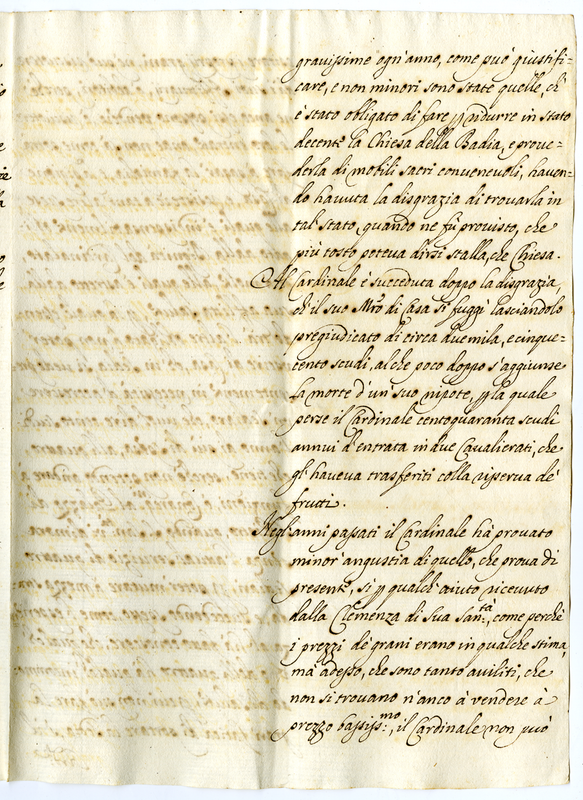 gravissime ogn'anno, come può giustifi-
care, e non minori sono state quelle, ch'
è stato obligato di fare p ridurre in stato
decente la Chiesa della Badia, e prove-
derla di mobili sacri convenevoli, haven-
do havuta la disgrazia di trovarla in
tal stato quando ne fù provisto, che
più tosto poteva dirsi stalla, che Chiesa.
Al Cardinale è succeduta doppo la disgrazia,
ch'il suo Mro di Casa si fuggì lasciandolo
pregiudicato di circa duemila, e cinque-
cento scudi, al che poco doppo s'aggiunse
la morte d'un suo nipote, p la quale
perse il Cardinale centoquaranta scudi
annui d'entrata in due Cavalierati, che
gl'haveva trasferiti colla riserva de'
frutti.
Negl'anni passati il Cardinale hà provato
minor'angustia di quello, che prova di
presente, sì p qualche aiuto ricevuto
dalla Clemenza di Sua San:tà, come perchè
i prezzi de' grani erano in qualche stima,
mà adesso, che sono tanto aviliti, che
non si trovano n'anco à vendere à
prezzo bassiss:mo, il Cardinale non può